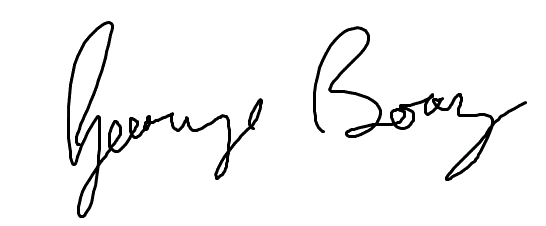 George Boaz